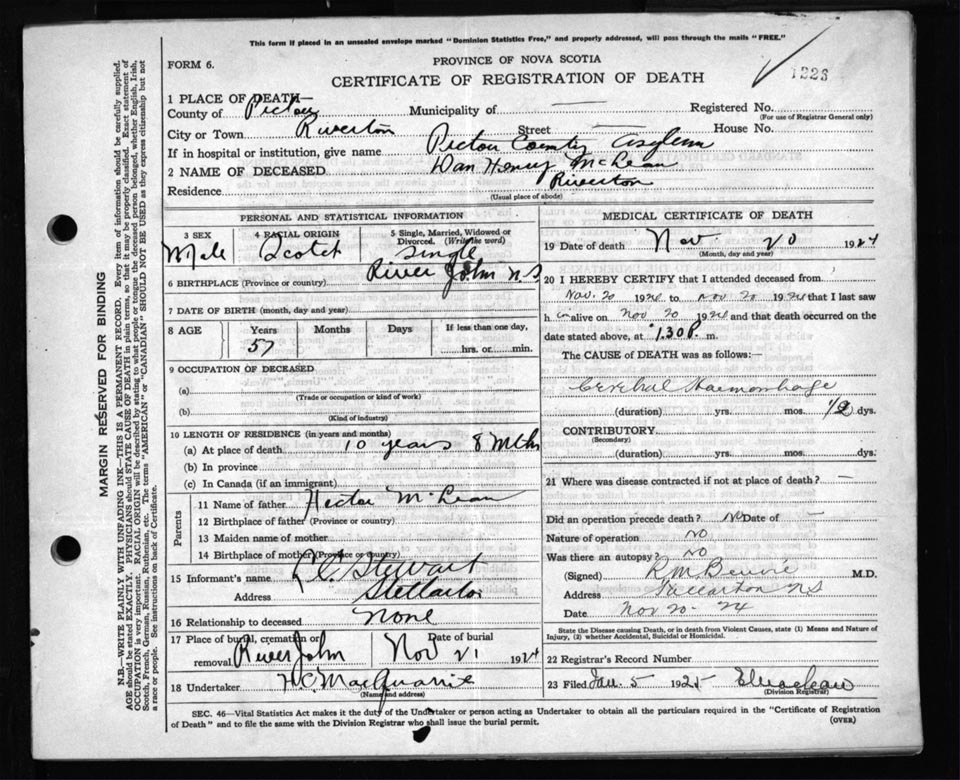 This form if placed in an unsealed envelope marked "Dominion Statistics Free," and properly addressed, will pass through the mails "FREE."
FORM 6.
PROVINCE OF NOVA SCOTIA
1223
CERTIFICATE OF REGISTRATION OF DEATH
1 PLACE OF DEATH—
County of Pictou Municipality of — Registered No.
(For use of Registrar General only)
City or Town Riverton Street — House No.
If in hospital or institution, give name Pictou County Asylum
2 NAME OF DECEASED Dan Henry McLean
Residence Riverton
(Usual place of abode)
PERSONAL AND STATISTICAL INFORMATION
3 SEX 4 RACIAL ORIGIN 5 Single, Married, Widowed or Divorced. (Write the word)
Male Scotch Single
6 BIRTHPLACE (Province or country) River John N.S
7 DATE OF BIRTH (month, day and year)
8 AGE Years Months Days If less than one day,
57 hrs. or min.
9 OCCUPATION OF DECEASED
(a)
(Trade or occupation or kind of work)
(b)
(Kind of industry)
10 LENGTH OF RESIDENCE (in years and months)
(a) At place of death 10 years 8 Mths
(b) In province
(c) In Canada (if an immigrant)
Parents
11 Name of father Hector McLean
12 Birthplace of father (Province or country)
13 Maiden name of mother
14 Birthplace of mother (Province or country)
15 Informant's name C. Stewart
Address Stellarton
16 Relationship to deceased None
17 Place of burial, cremation or removal. River John Date of burial Nov 21 1924
18 Undertaker H.C. MacQuarrie
(Name and address)
MEDICAL CERTIFICATE OF DEATH
19 Date of death Nov. 20 1924
(Month, day and year)
20 I HEREBY CERTIFY that I attended deceased from
Nov. 20 1924 to Nov 20 1924 that I last saw
h im alive on Nov 20 1924 and that death occurred on the
date stated above, at 1.30 P. m.
The CAUSE of DEATH was as follows:—
Cerebral Haemorrhage
(duration) yrs. mos. 1/2 dys.
CONTRIBUTORY
(Secondary)
(duration) yrs. mos. dys.
21 Where was disease contracted if not at place of death? —
Did an operation precede death? No Date of —
Nature of operation no
Was there an autopsy? no
(Signed) M.D.
Address Stellarton N.S
Date Nov 20 - 24
State the Disease causing Death, or in death from Violent Causes, state (1) Means and Nature of Injury, (2) whether Accidental, Suicidal or Homicidal.
22 Registrar's Record Number
23 Filed Jan. 5 1925
(Division Registrar)
SEC. 46—Vital Statistics Act makes it the duty of the Undertaker or person acting as Undertaker to obtain all the particulars required in the "Certificate of Registration
of Death" and to file the same with the Division Registrar who shall issue the burial permit.
(OVER)
MARGIN RESERVED FOR BINDING
N.B.—WRITE PLAINLY WITH UNFADING INK—THIS IS A PERMANENT RECORD. Every item of information should be carefully supplied.
AGE should be stated EXACTLY. PHYSICIANS should STATE CAUSE OF DEATH in plain terms, so that it may be properly classified. Exact statement of
OCCUPATION is very important. RACIAL ORIGIN will be described by stating to what people or tongue the deceased person belonged, whether English, Irish,
Scotch, French, German, Russian, Ruthenian, etc. The terms "AMERICAN" or "CANADIAN" SHOULD NOT BE USED as they express citizenship but not
a race or people. See instructions on back of Certificate.